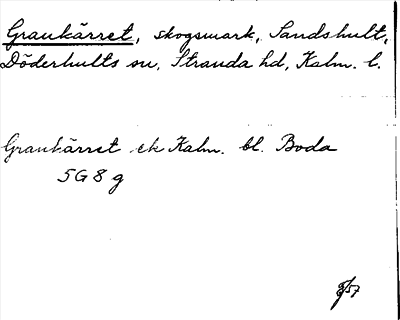 Grankärret, skogsmark, Sandshult,
Döderhults sn, Stranda hd, Kalm. l.
Grankärret ek Kalm. bl. Boda
5G 8 g